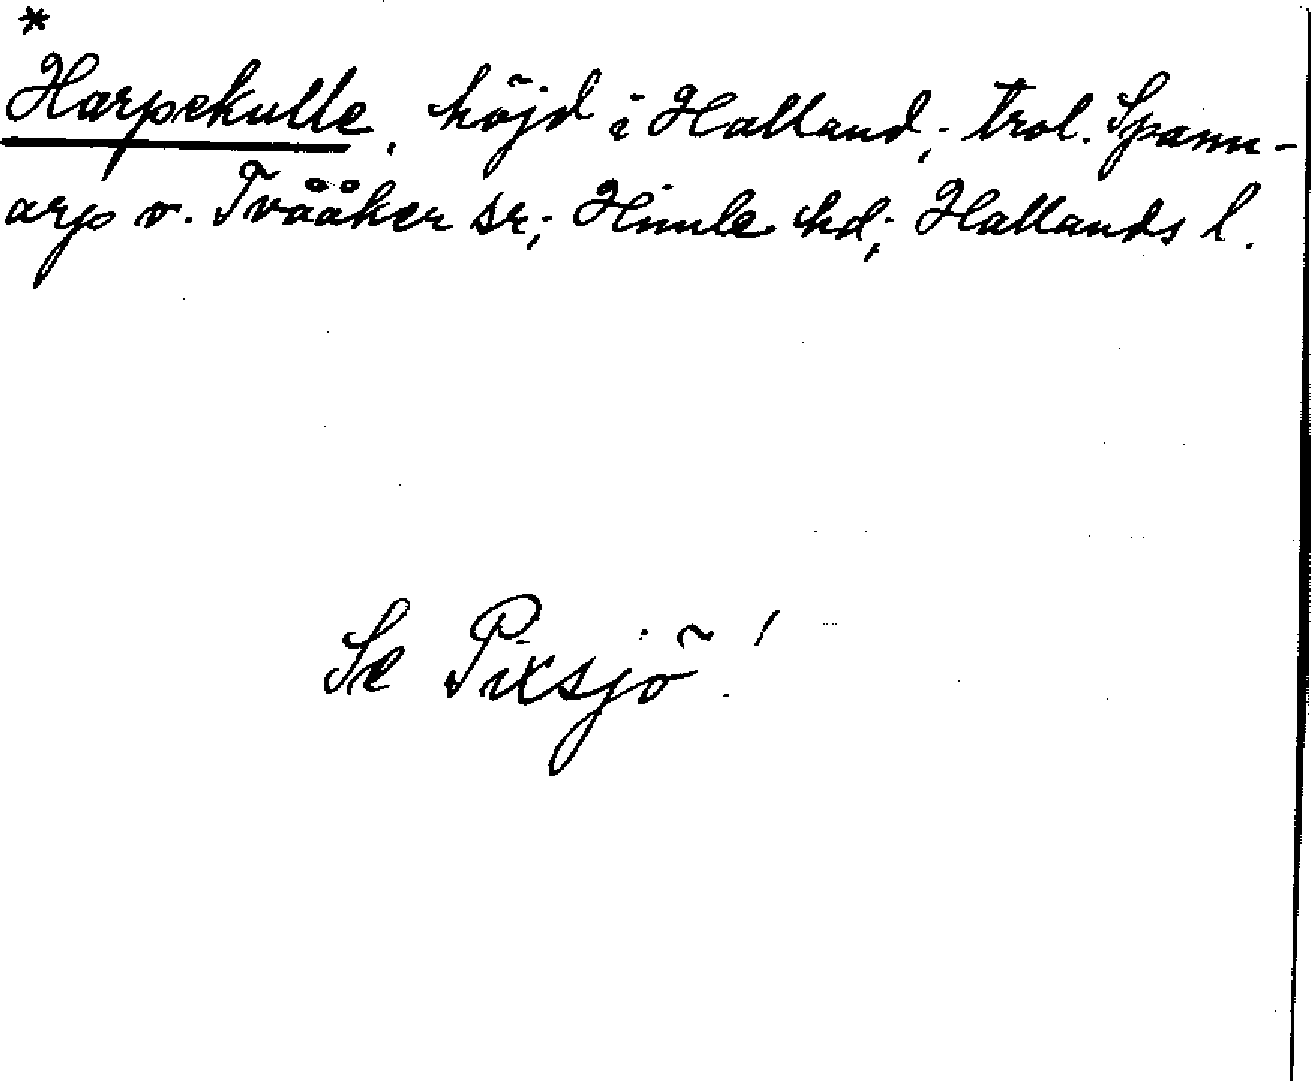 *
Harpekulle, höjd i Halland; trol. Spann-
arp o. Tvååker sr; Himle hd; Hallands l.
Se Pixsjö!